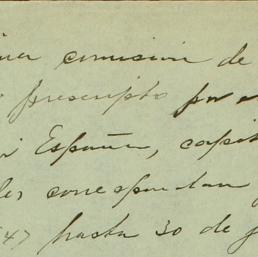 comision de
prescripto por
España, capi
les correspondan
47 hasta 30 de j